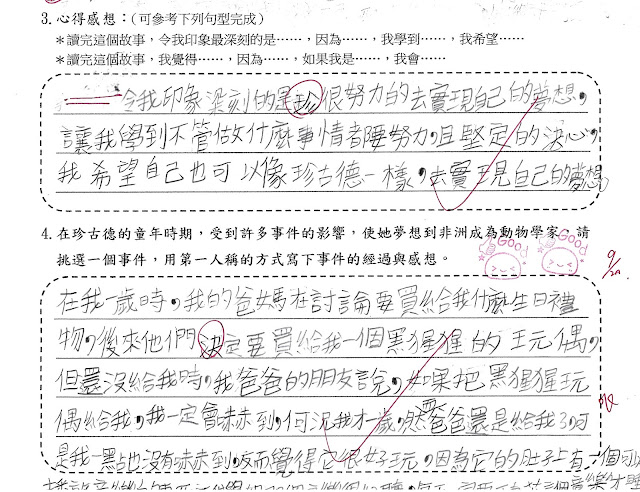 3. 心得感想：(可參考下列句型完成)
＊讀完這個故事，令我印象最深刻的是……，因為……，我學到……，我希望……
＊讀完這個故事，我覺得……，因為……，如果我是……，我會……
令我印象深刻的是珍很努力的去實現自己的夢想，
讓我學到不管做什麼事情都要努力，且堅定的決心，
我希望自己也可以像珍古德一樣，去實現自己的夢想
4. 在珍古德的童年時期，受到許多事件的影響，使她夢想到非洲成為動物學家。請
挑選一個事件，用第一人稱的方式寫下事件的經過與感想。
Good
Good
9/20
在我一歲時，我的爸媽在討論要買給我什麼生日禮
物，後來他們決定要買給我一個黑猩猩的玩偶，
但還沒給我時，我爸爸的朋友說，如果把黑猩猩玩
偶給我，我一定會嚇到，何況我才一歲，爸爸還是給我了，可
是我一點也沒有嚇到，反而覺得它很好玩，因為它的肚子上有一個可